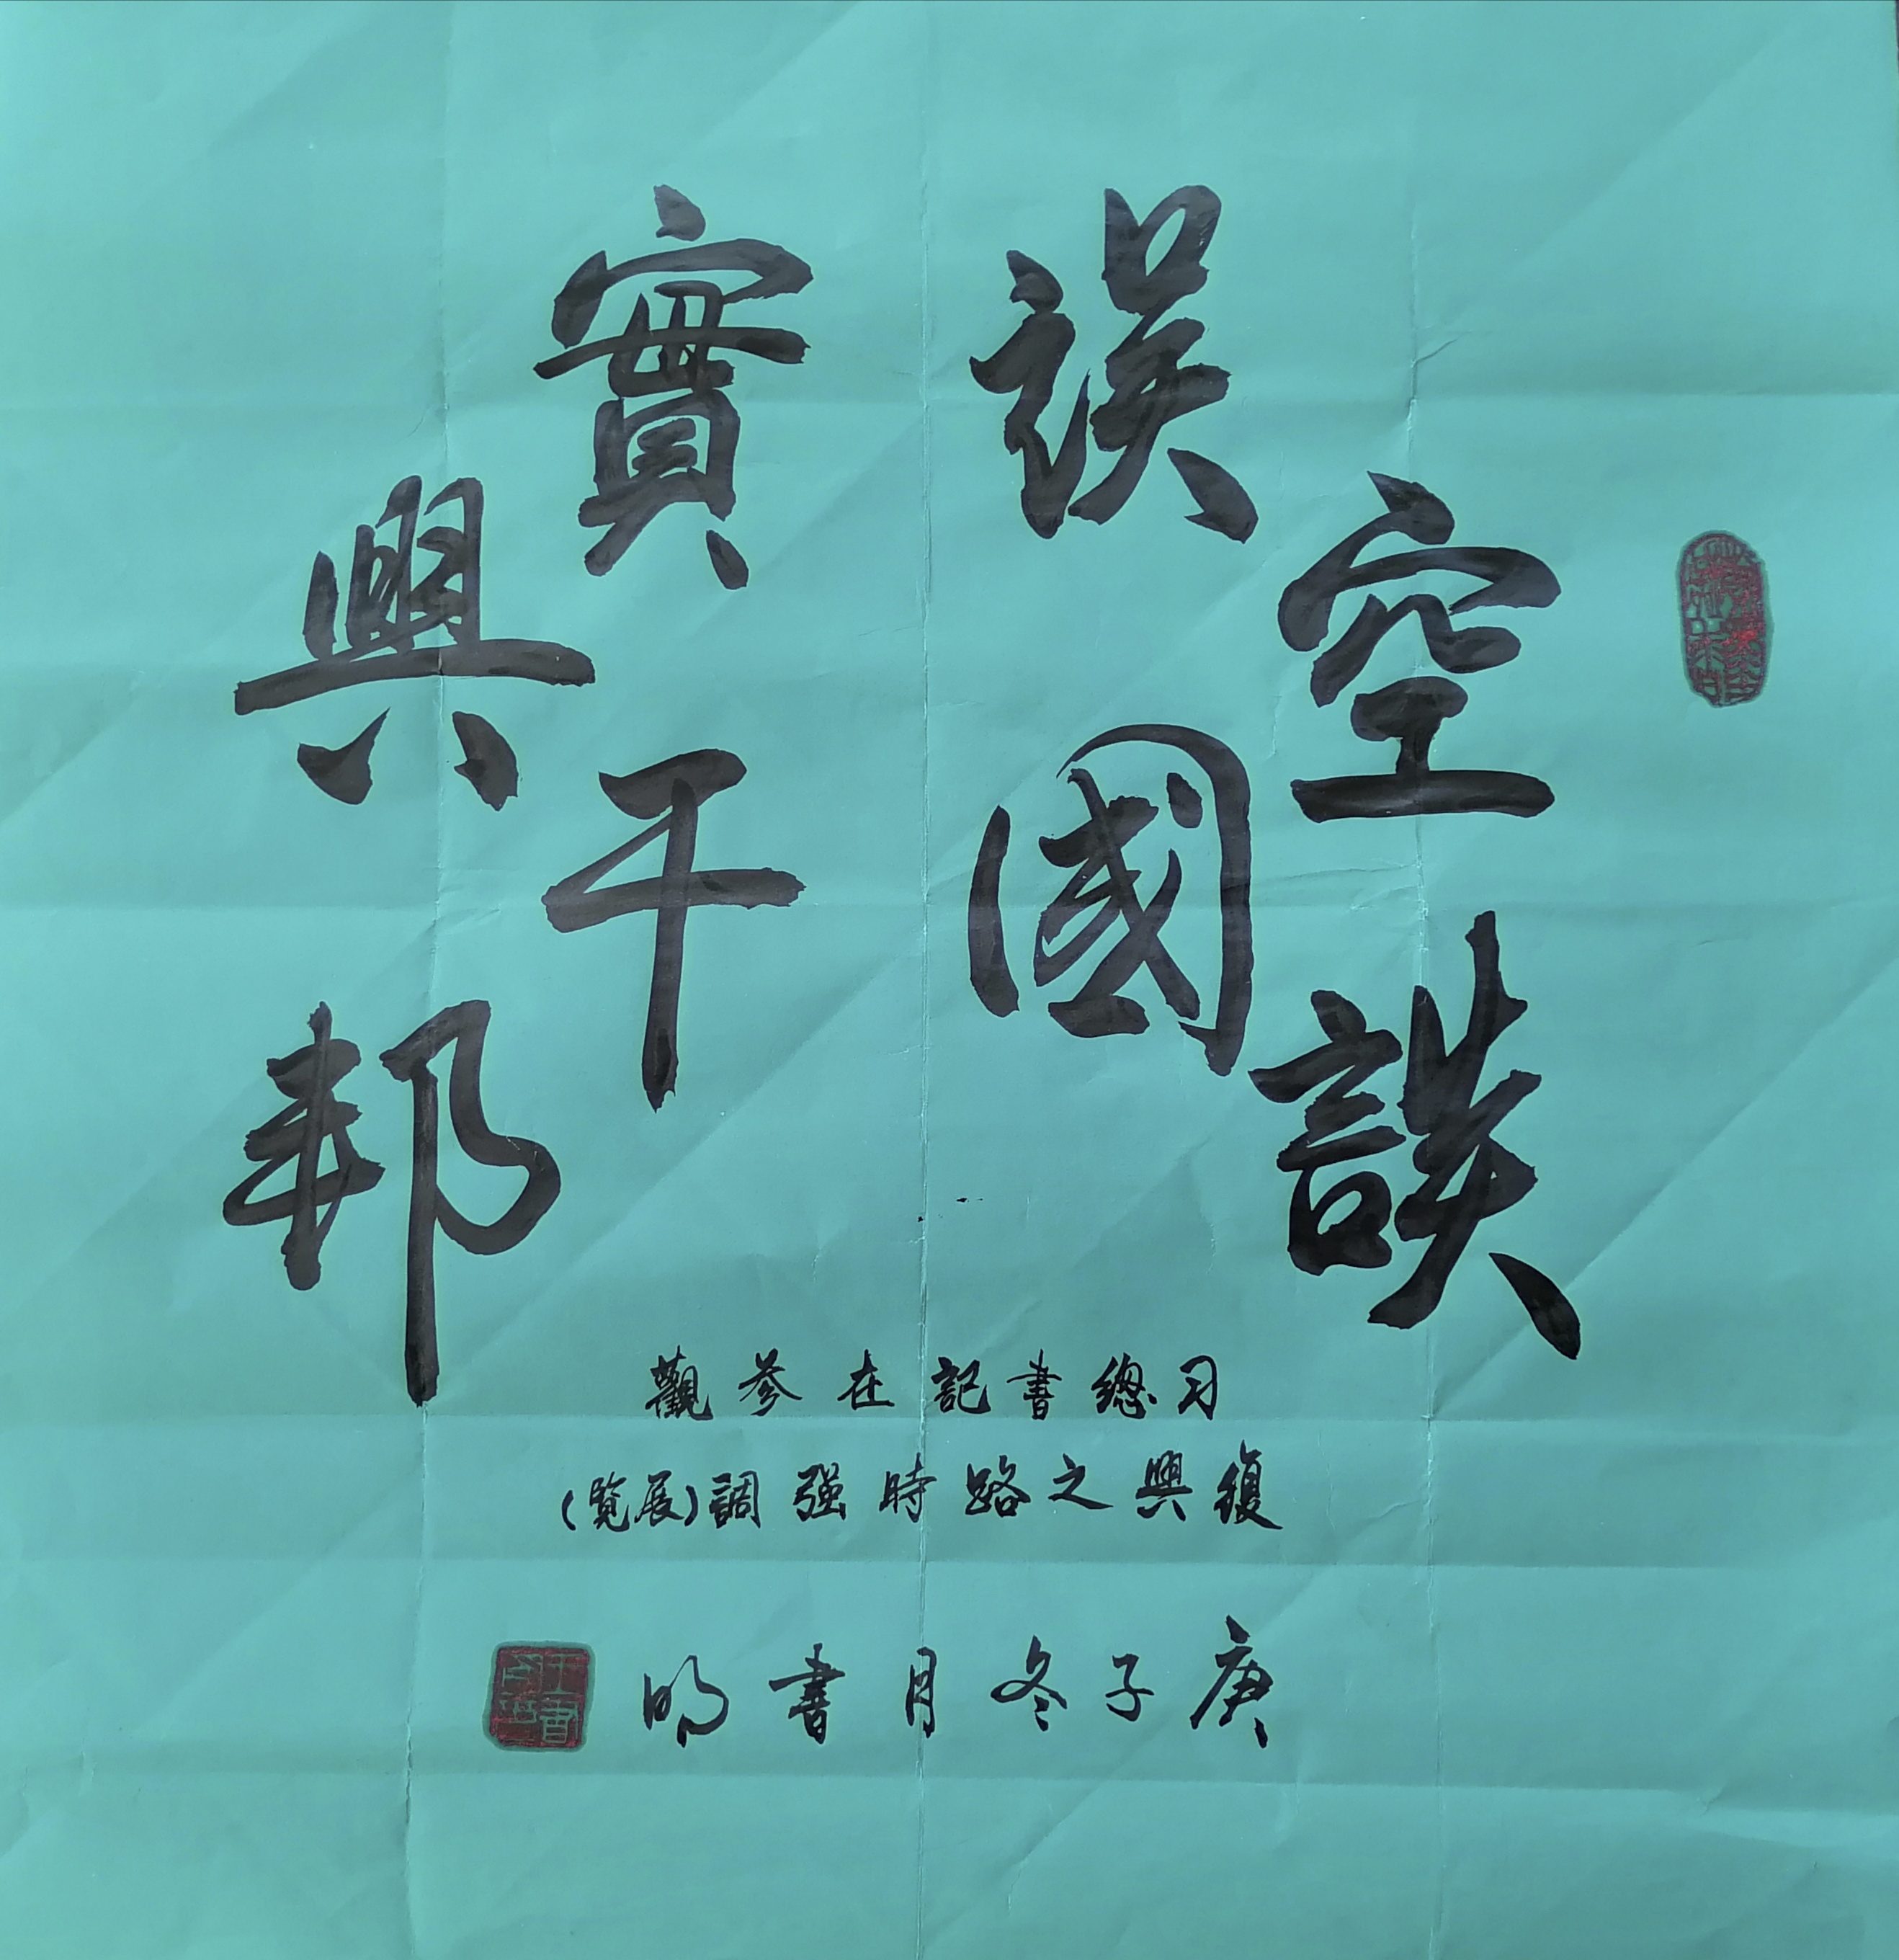 空談
誤國
實干
興邦
习總書記在參觀
復興之路時强調(展覧)
庚子冬月書明